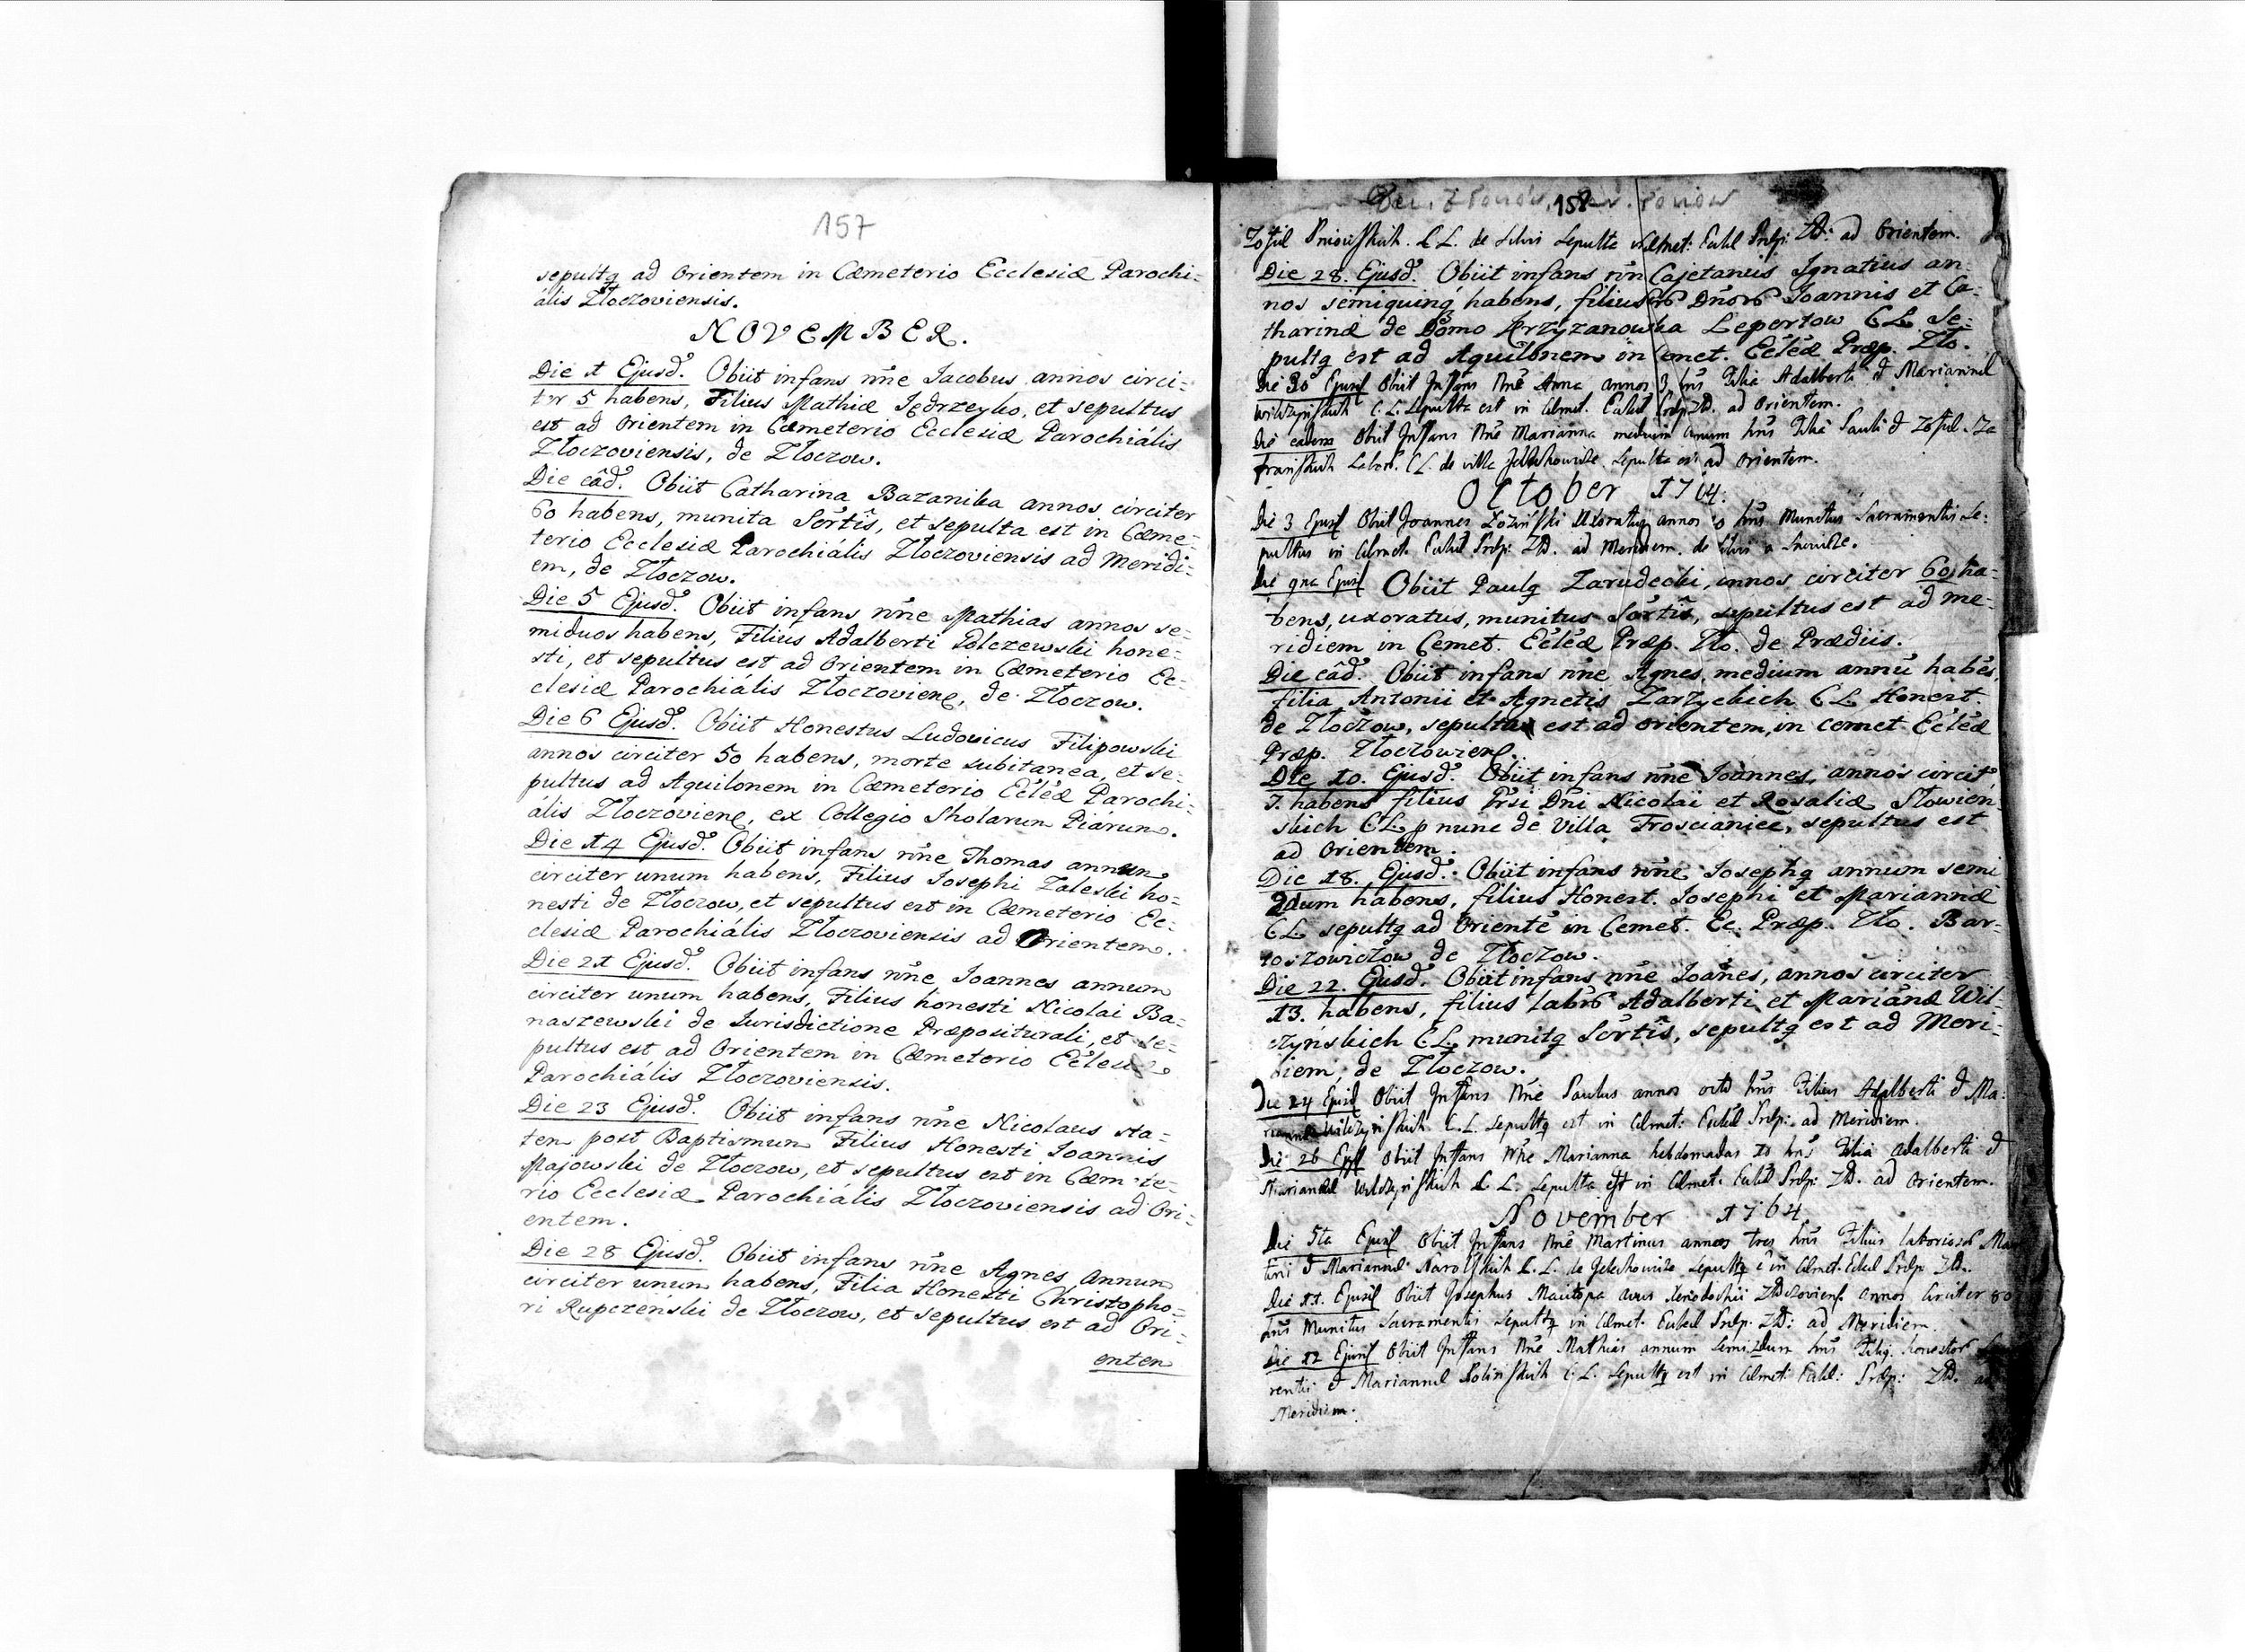 157
sepultꝗ ad Orientem in Cæmeterio Ecclesiæ Parochi=
ális Złoczoviensis.
NOVEMBER.
Die 1 Ejusd. Obiit infans nñe Jacobus annos circi=
ter 5 habens, Filius Mathiæ Jędrzeyko, et sepultus
est ad Orientem in Cæmeterio Ecclesiæ Parochiális
Złoczoviensis, de Złoczow.
Die eâd. Obiit Catharina Bazanika annos circiter
60 habens, munita Sĉrtis, et sepulta est in Cæme=
terio Ecclesiæ Parochiális Złoczoviensis ad Meridi=
em, de Złoczow.
Die 5 Ejusd. Obiit infans nñe Mathias annos se=
miduos habens, Filius Adalberti Polczewski hone=
sti, et sepultus est ad Orientem in Cæmeterio Ec=
clesiæ Parochiális Złoczovienẽ, de Złoczow.
Die 6 Ejusd. Obiit Honestus Ludovicus Filipowski
annos circiter 50 habens, morte subitanea, et se=
pultus ad Aquilonem in Cæmeterio Ecĉleæ Parochi=
ális Złoczovienẽ, ex Collegio Sholarum Piárum.
Die 14 Ejusd. Obiit infans nñe Thomas annum
circiter unum habens, Filius Josephi Zaleski ho=
nesti de Złoczow, et sepultus est in Cæmeterio Ec=
clesiæ Parochiális Złoczoviensis ad Orientem.
Die 21 Ejusd. Obiit infans nñe Joannes annum
circiter unum habens, Filius honesti Nicolai Ba=
naszewski de Jurisdictione Præpositurali, et se=
pultus est ad Orientem in Cæmeterio
Parochiális Złoczoviensis.
Die 23 Ejusd. Obiit infans nñe Nicolaus sta=
tem post Baptismum Filius Honesti Joannis
Majowski de Złoczow, et sepultus est in Cæmete=
rio Ecclesiæ Parochiális Złoczoviensis ad Ori=
entem.
Die 28 Ejusd. Obiit infans nñe Agnes Annum
circiter unum habens, Filia Honesti Christopho=
ri Rupczeński de Złoczow, et sepultus est ad Ori=
entem
158
de Silvis Sepulta ad Orientem.
Die 28. Ejusd. Obiit infans nñ Cajetanus Ignatius an=
nos semiquinꝗ habens, filius Dñorũ Joannis et Ca=
tharinæ de Domo Krzyzanowska Lepertow CL. Se=
pultꝗ est ad Aquilonem in Cemet. Ecĉleæ Præp. Zło.
Die 30 Ejusd Obiit Infans Nñe Anna annos 3 hñs Filia Adalberti et Mariannæ
Wilczynskich C.L. Sepulta est in Cæmet. ad Orientem.
Die eadem Obiit Infans Nñe Marianna medium Anum hñs Filia Pauli et
C.L. de villa Jelechowice Sepulta est ad Orientem.
October 1764.
Die 3 Ejusd Obiit Joannes Uxoratꝗ annos hñs Munitus Sacramentis Se=
pultus in Cæmet. ad Meridiem. de
Die 9na Ejusd Obiit Paulꝗ Zarudecki, annos circiter 60 ha=
bens, uxoratus, munitus Sĉrtis, sepultus est ad me=
ridiem in Cemet. Ecĉleæ Præp. Zło. de Prædiis.
Die eâd. Obiit infans nñe Agnes, medium annũ habẽs,
filia Antonii et Agnetis Zarzyckich CL. Honest.
de Złoczow, sepulta est ad orientem, in cemet Ecĉleæ
Præp. Złoczowienẽ.
Die 10. Ejusd. Obiit infans nñe Joannes, annos circit
habens filius Dñi Nicolai et Rosaliæ Słowien=
skich CL p nunc de Villa Troscianiec, sepultus est
ad Orientem.
Die 18. Ejusd. Obiit infans nñe Josephꝗ annum semi
2dum habens, filius Honest. Josephi et Mariannæ
CL sepultꝗ ad Orientẽ in Cemet. Ec. Præp. Zło. Bar=
toszowiczow de Złoczow.
Die 22. Ejusd. Obiit infans nñe Joañes, annos circiter
13. habens, filius labrũ Adalberti et Mariañæ Wil=
czyńskich CL, munitꝗ Sĉrtis, sepultꝗ est ad Meri=
diem, de Złoczow.
Die 24 Ejusd Obiit Infans Nñe Paulus annos octo hñs Filius Adalberti et Ma=
riannæ Wilczynskich C.L. Sepultꝗ est in Cæmet: ad Meridiem.
Die 26 Ejusd Obiit Infans Nñe Marianna hebdomadas 10 hñs Filia Adalberti et
Mariannæ Wilczynskich C L. Sepulta est in Cæmet. Zło. ad Orientem.
November 1764
Die 5ta Ejusd Obiit Infans Nñe Martinus annos tres hñs Filius laboriosorũ Mar
tini et Mariannæ C.L. de Jelechowice sepultꝗ in Cæmet. Zło.
Die 11. Ejusd Obiit Josephus avus Xenodochii Złoczoviens. annos circiter 80
hñs Munitus Sacramentis Sepultꝗ in Cæmet. Zło: ad Meridiem.
Die 12 Ejusd Obiit Infans Nñe Mathias annum semi 2dum hñs Filiꝗ. honestorũ
rentii et Mariannæ C.L. Sepultꝗ est in Cæmet: Zło. ad
Meridiem.